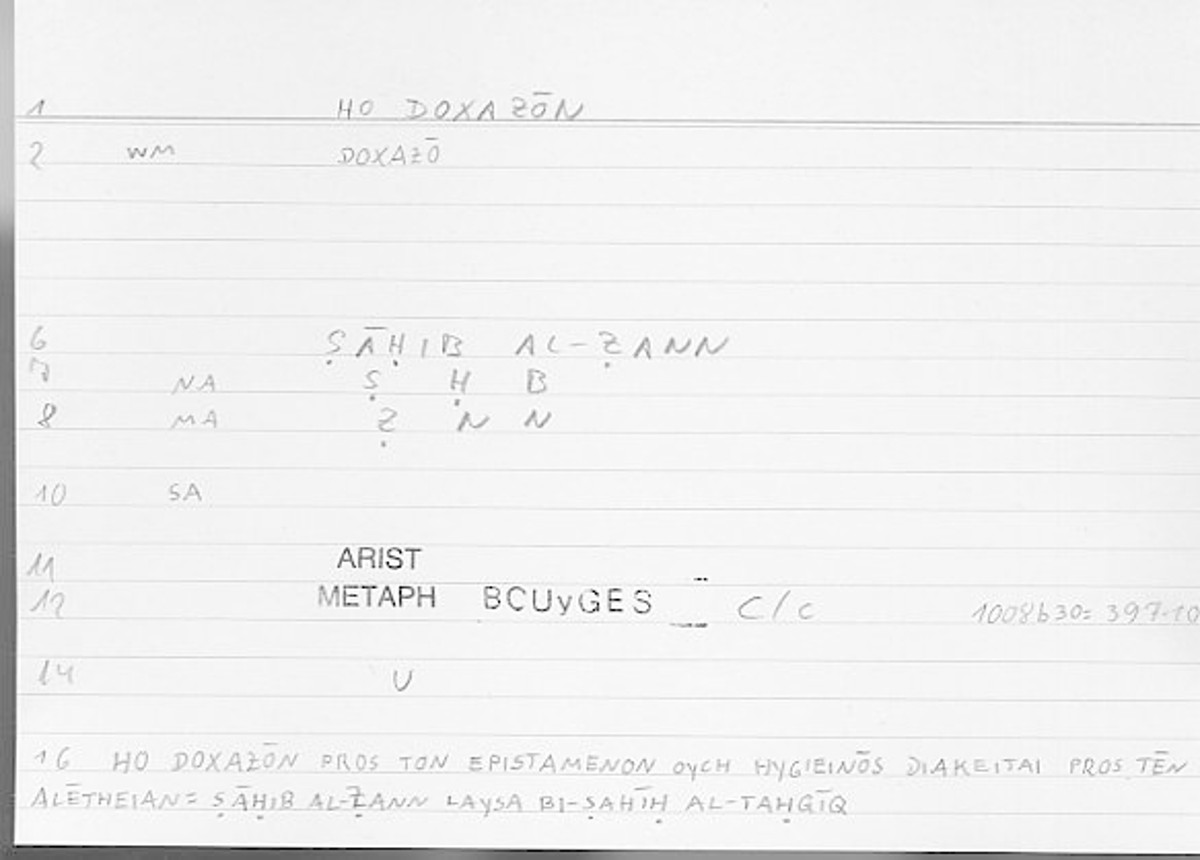 1 HO DOXAZŌN
2 WM DOXAZŌ
6 ṢĀḤIB AL-ẒANN
7 NA Ṣ Ḥ B
8 MA Ẓ N N
10 SA
11 ARIST
12 METAPH BCUyGES C/c 1008b30= 397.10
14 U
16 HO DOXAZŌN PROS TON EPISTAMENON OyCH HYGIEINŌS DIAKEITAI PROS TĒN
ALĒTHEIAN= ṢĀḤIB AL-ẒANN LAySA BI-ṢAḤĪḤ AL-TAḤQĪQ